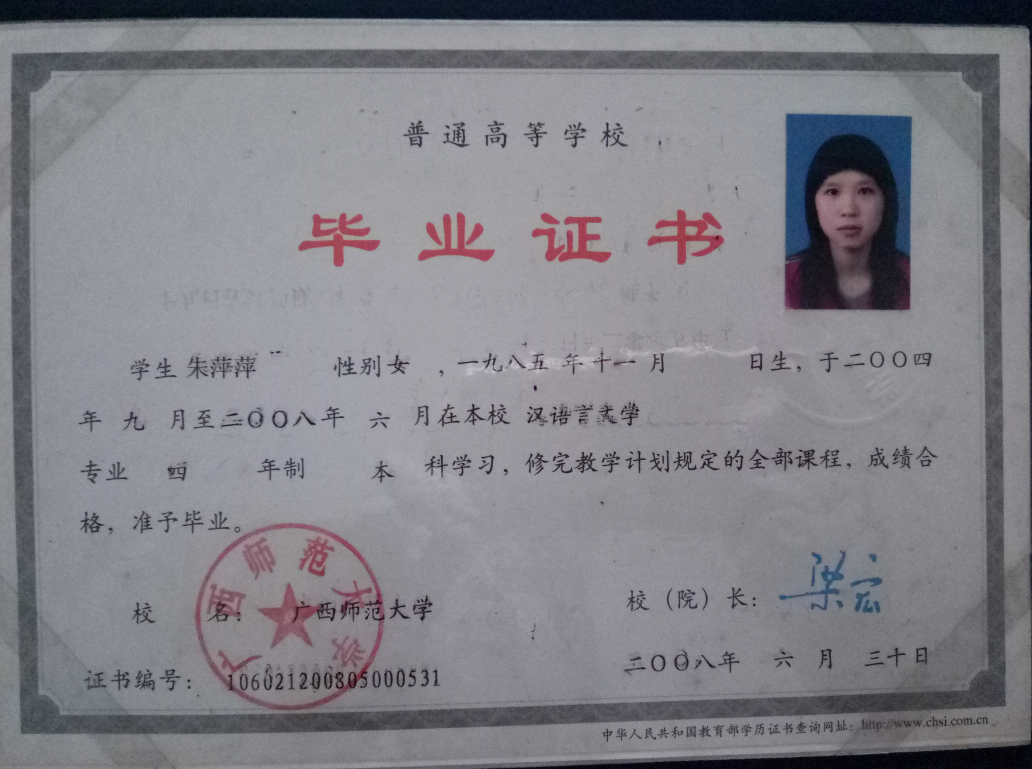 普通高等学校
毕业证书
学生 朱萍萍 性别 女 ，一九八五 年 十一 月 日生，于二〇〇四
年 九 月至二〇〇八年 六 月在本校 汉语言文学
专业 四 年制 本 科学习，修完教学计划规定的全部课程，成绩合
格，准予毕业。
广西师范大学
校 名： 广西师范大学 校（院）长： 梁宏
证书编号： 106021200805000531 二〇〇八年 六 月 三十日
中华人民共和国教育部学历证书查询网址：http://www.chsi.com.cn